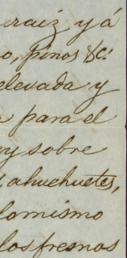 raiz y á
o, pinos &c.
elevada y
para el
y sobre
ahuehuetes,
lo mismo
los fresnos